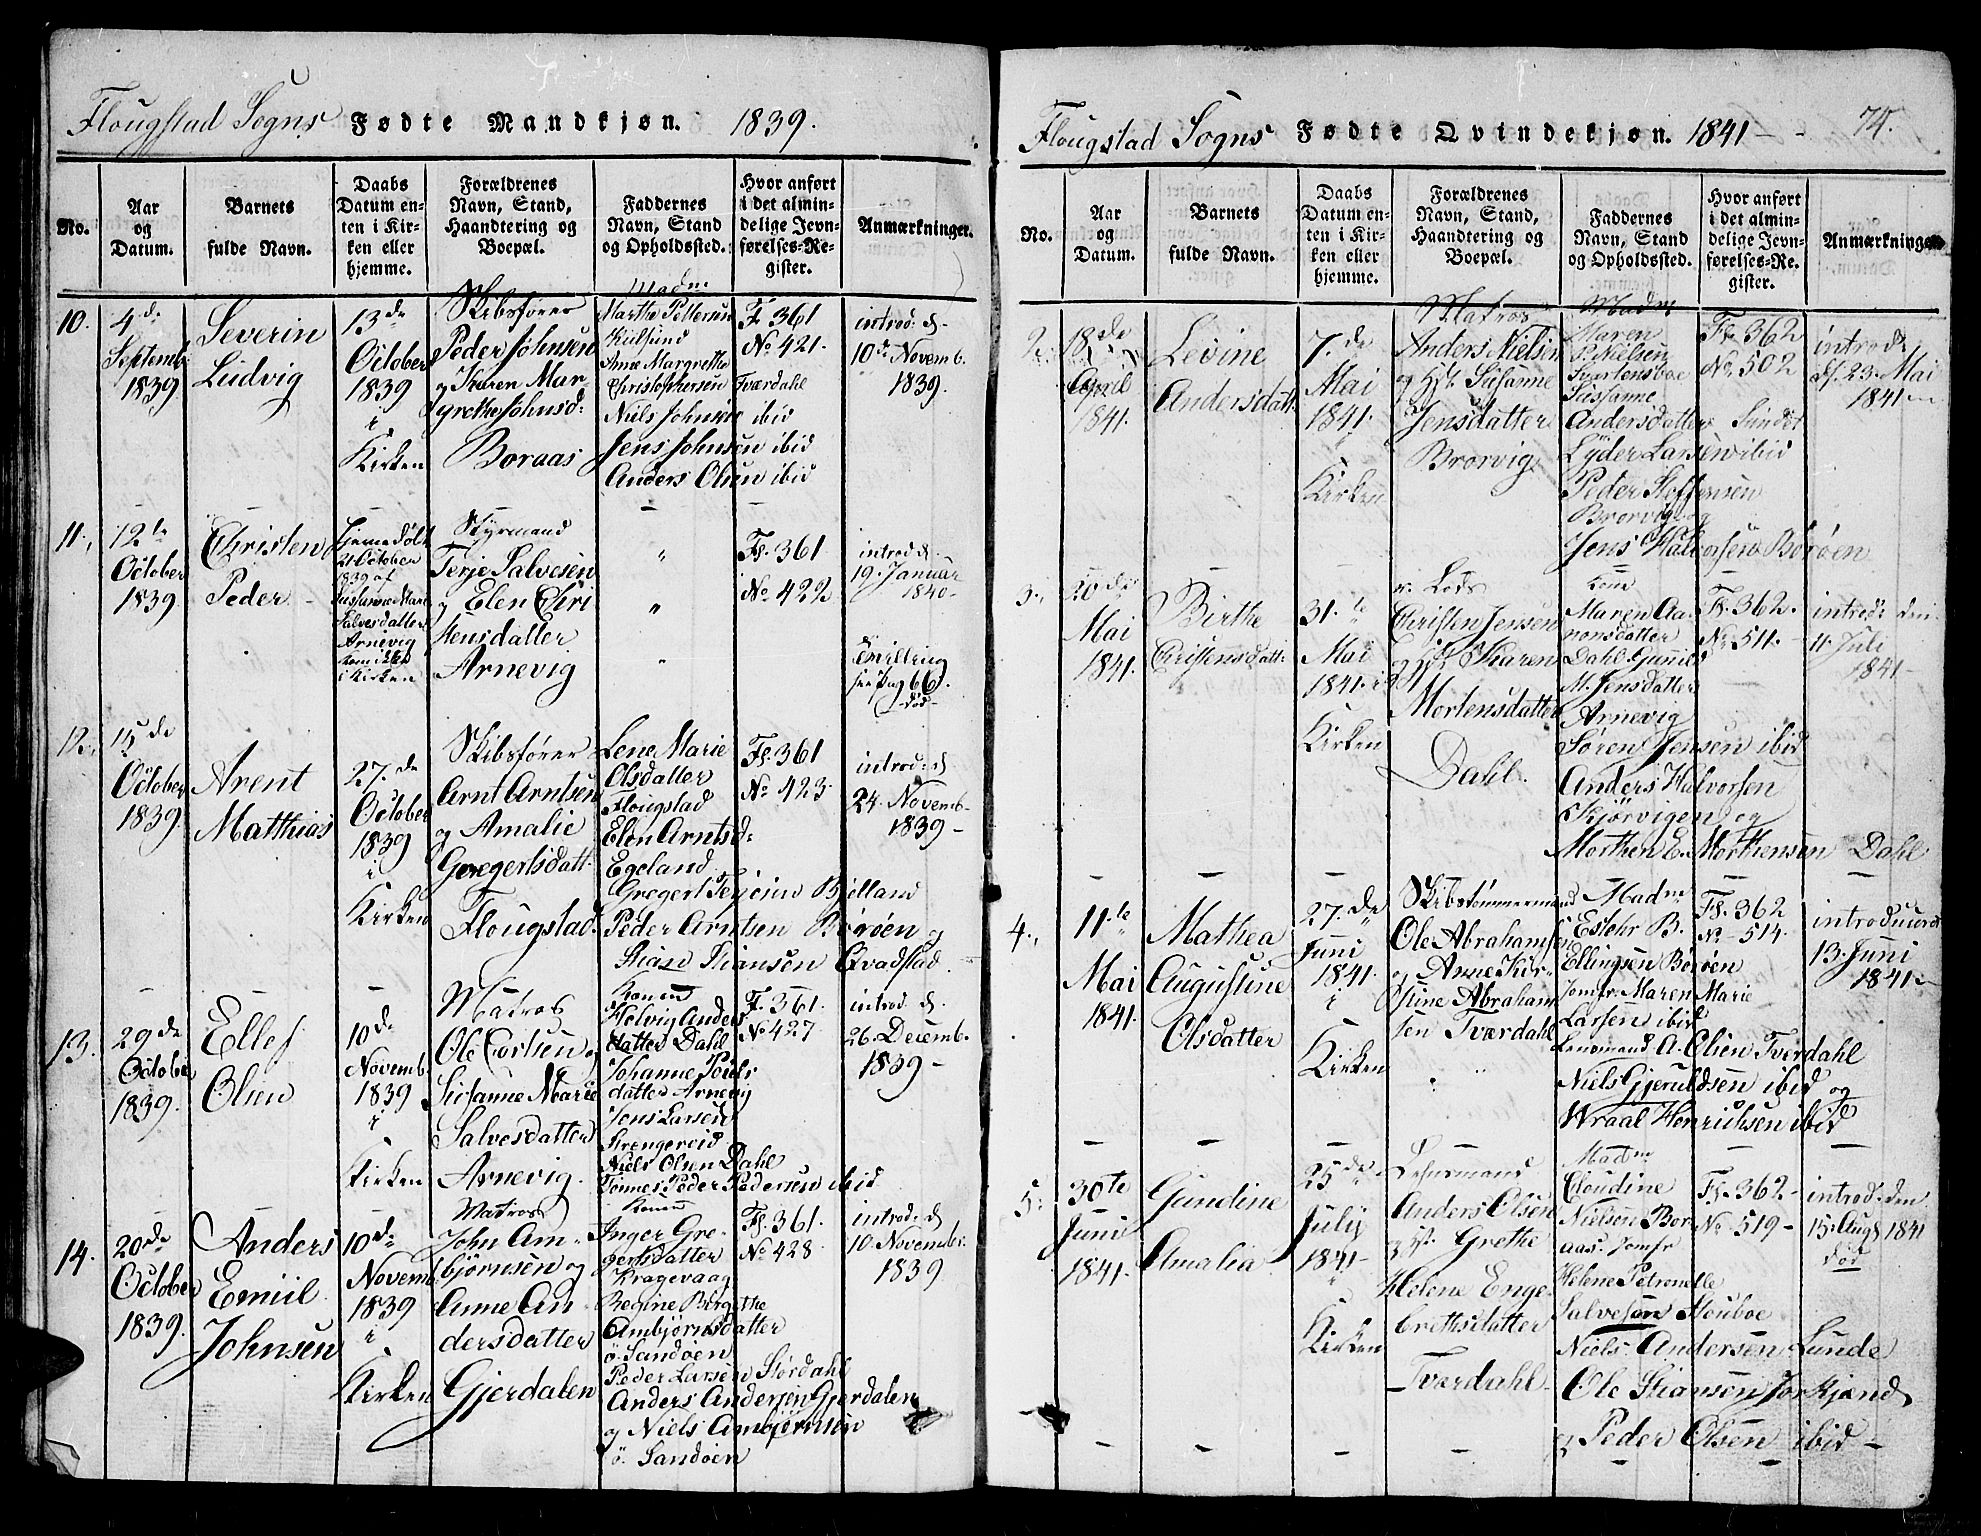 Flougstad Sogns Fødte Mandkjøn. 1839.
No.
Aar og Datum.
Barnets fulde Navn.
Daabs Datum enten i Kirken eller hjemme.
Forældrenes Navn, Stand, Haandtering og Boepæl.
Faddernes Navn, Stand og Opholdssted.
Hvor anført i det almindelige Jevnførelses-Register.
Anmærkninger.
10.
4de
Septemb.
1839
Severin
Ludvig
13de
October
1839
i
Kirken
Skibsfører
Peder Johnsen
og Karen Mar-
grethe Johnsd:
Boraas
Madm
Marthe Pettersen
Kulsund
Anne Margrethe
Christophersen Tværdahl
Niels Johnsen ibid
Jens Johnsen ibid
Anders Olsen ibid
Fl. 361
No 421.
introd: d.
10de Novemb.
1839.
11.
12te
October
1839
Christen
Peder
Hjemmedøbt
21 October
1839 af
Susanne Marie
Salvesdatter
Arnevig
i Kirken
Styrmand
Terje Salvesen
og Elen Chri
stensdatter
Arnevig
Fl. 361.
No 422
introd: d.
19. Januar
1840
see Pag 66.
død
12.
15de
October
1839.
Arent
Matthias
27.de
October
1839
i
Kirken
Skibsfører
Arnt Arntsen
og Amalie
Gregertsdatt:
Flougstad.
Lene Marie
Olsdatter
Flougstad
Elen Arntsd:
Egeland
Gregert Terjesen Bjelland
Peder Arntsen Børøen og
Stian Stiansen Qvadstad.
Fl. 361
No 423.
introd: d.
24. Novemb.
1839
13.
29de
October
1839.
Ellef
Olsen
10de
Novemb.
1839
i
Kirken
Matros
Ole Corlsen og
Susanne Marie
Salvesdatter
Arnevig.
Konen
Helvig Anders
datter Dahl
Johanne Pouls
datter Arnevig
Jens Larsen
Krengereid
Niels Olsen Dahl
Tønnes Peder Pedersen ibid
Fl. 361.
No 427
introd: d.
26. Decemb.
1839
14.
20de
October
1839.
Anders
Emiil
Johnsen
10de
Novemb.
1839
i
Kirken
Matros
John Am-
bjørnsen og
Anne An
dersdatter
Gjerdalen
Konen
Inger Gre-
gertsdatter
Kragevaag
Regine Birgithe
Ambjørnsdatter
ø. Sandøen
Peder Larsen Stordahl
Anders Andersen Gjerdalen
og Niels Ambjørnsen
ø. Sandøen
Fl. 361.
No 428.
introd: d
10. November
1839
Flougstad Sogns Fødte Qvindekjøn. 1841
74.
No.
Aar og Datum.
Barnets fulde Navn.
Daabs Datum enten i Kirken eller hjemme.
Forældrenes Navn, Stand, Haandtering og Boepæl.
Faddernes Navn, Stand og Opholdssted.
Hvor anført i det almindelige Jevnførelses-Register.
Anmærkninger
2.
18de
April
1841.
Levine
Andersdatt:
7.de
Mai
1841.
i
Kirken
Matros
Anders Nielsen
og Hst. Susanne
Jensdatter
Brorvig
Madm
Maren
Nielsen
Svertensboe
Sussanne
Andersdatter Sundet
Lyder Larsen ibid
Peder Steffensen
Brorvig og
Jens Halvorsen Børøen
Fl. 362
No 502
introd:
d. 23. Mai
1841
3.
20de
Mai
1841.
Birthe
Christensdatt:
31.te
Mai
1841. i
Kirken
Lods
Christen Jensen
og Hst. Karen
Mortensdatter
Dahl.
Kone
Maren Aa-
nonsdatter
Dahl Gunild
M. Jensdatter
Arnevig
Søren Jensen ibid
Anders Halvorsen
Skjørvigen og
Morthen E. Morthensen Dahl
Fl. 362.
No 511.
introd: den
11. Juli
1841
4.
11te
Mai
1841.
Mathea
Augustine
Olsdatter
27.de
Juni
1841.
i
Kirken
Skibstømmermand
Ole Abrahamsen
og Anne Kir-
stine Abraham
sen Tværdahl
Madm
Estehr B.
Ellingsen Børøen
Jomfr. Maren Marie
Larsen ibid
Lensmand A. Olsen Tverdahl
Niels Gjeruldsen ibid og
Wraal Henrichsen ibid
Fl. 362
No 514.
introduceret
13. Juni
1841
5.
30te
Juni
1841.
Gundine
Amalia
25de
July
1841
i
Kirken
Lensmand
Anders Olsen
og Hst. Grethe
Helene Enge-
brethsdatter
Tværdahl
Madm
Cloudine
Nielsen Bor
aas. Jomfr
Helene Petronelle
Salvesen Stouboe
Niels Andersen Lunde
Ole Stiansen Torkjend
og Peder Olsen ibid
Fl. 362
No 519
introd: den
15. Augs 1841
død